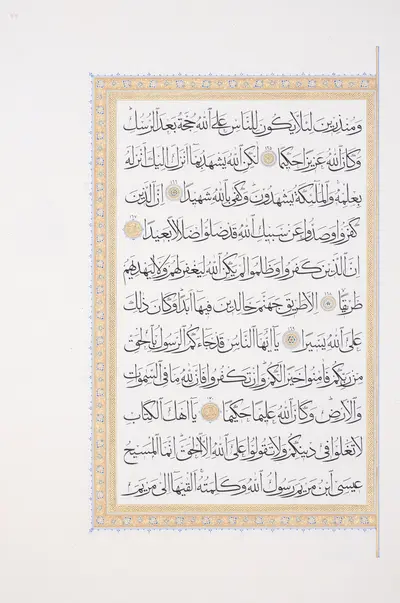 ومنذرين لئلا يكون للناس على الله حجة بعد الرسل
وكان الله عزيزا حكيما لكن الله يشهد بما أنزل إليك أنزله
بعلمه والملئكة يشهدون وكفى بالله شهيدا إن الذين
كفروا وصدوا عن سبيل الله قد ضلوا ضلالا بعيدا
إن الذين كفروا وظلموا لم يكن الله ليغفر لهم ولا ليهديهم
طريقا إلا طريق جهنم خالدين فيها أبدا وكان ذلك
على الله يسيرا يا أيها الناس قد جاءكم الرسول بالحق
من ربكم فآمنوا خيرا لكم وإن تكفروا فإن لله ما في السموات
والأرض وكان الله عليما حكيما يا أهل الكتاب
لا تغلوا في دينكم ولا تقولوا على الله إلا الحق إنما المسيح
عيسى ابن مريم رسول الله وكلمته ألقيها إلى مريم